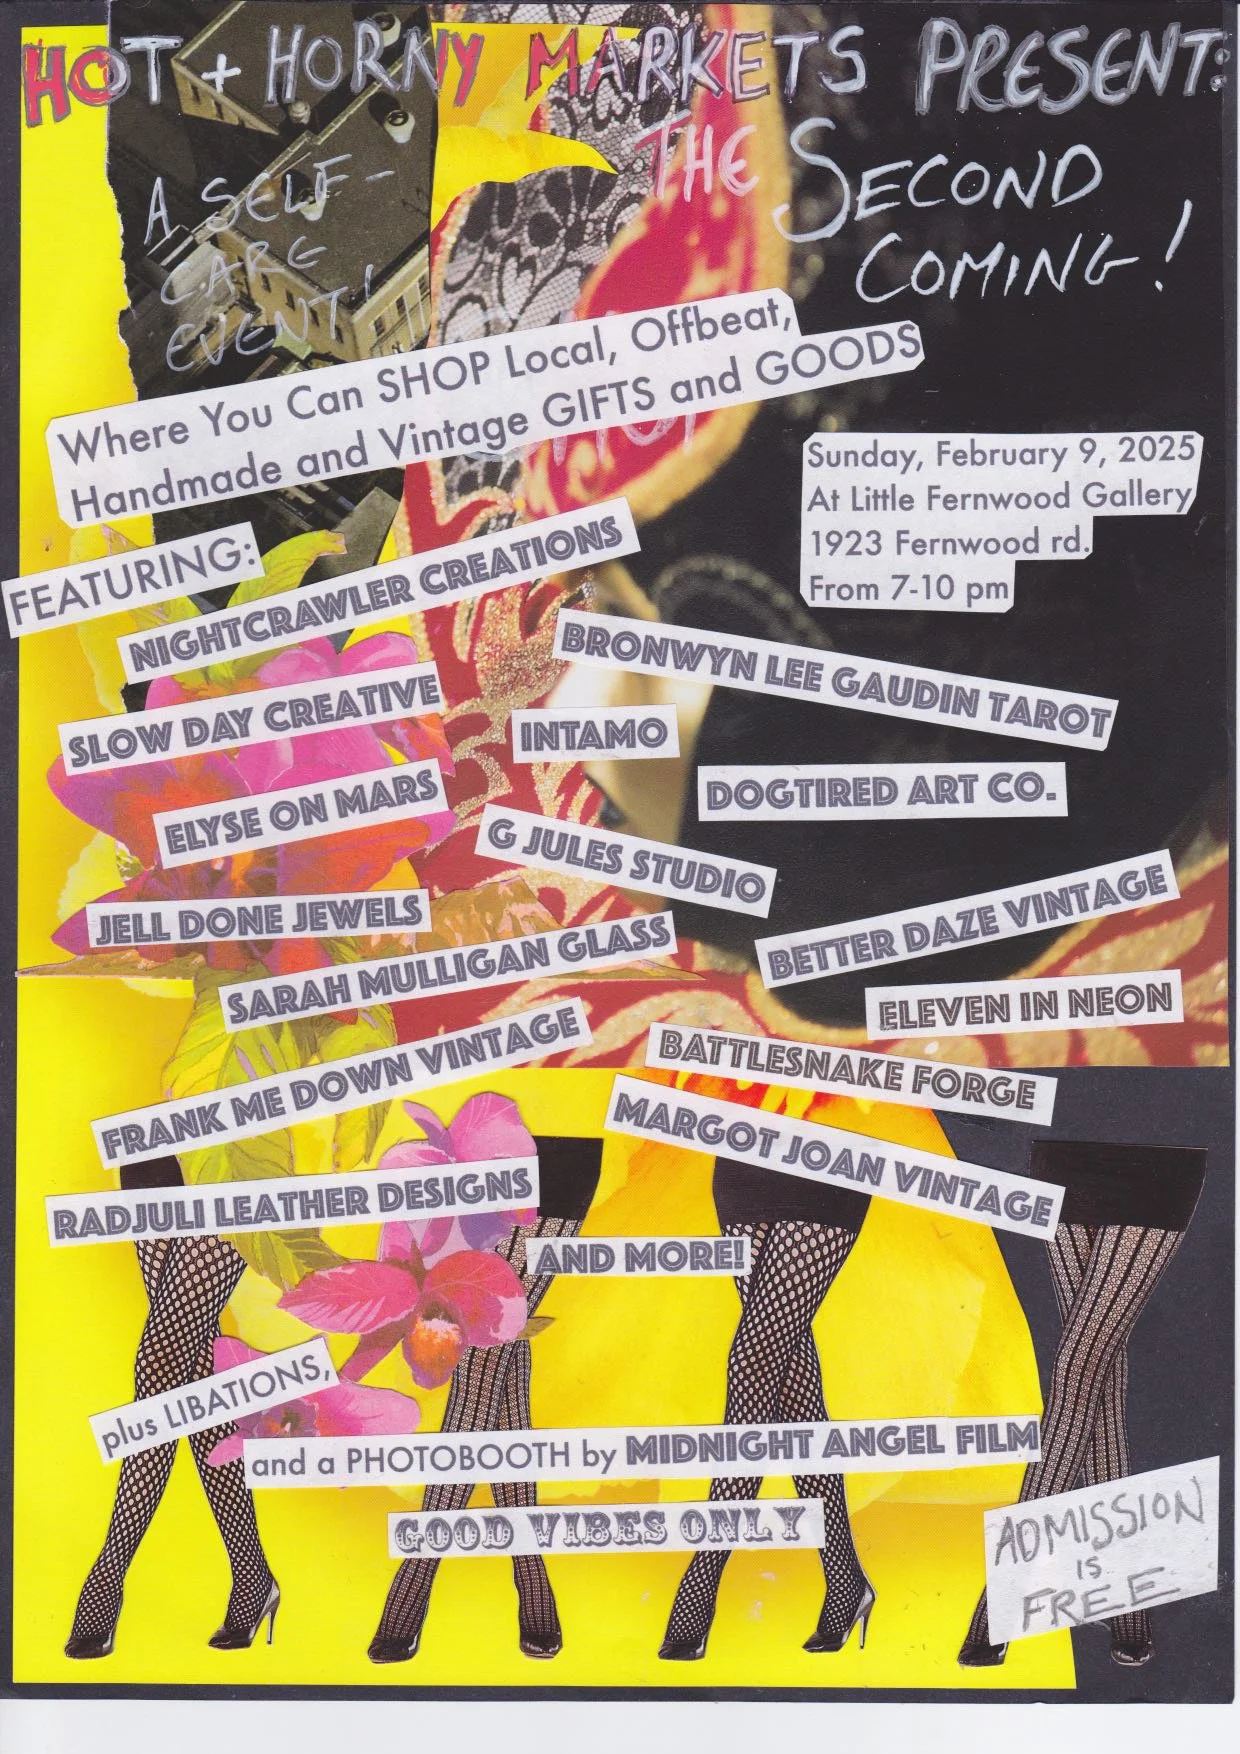 HOT + HORNY MARKETS PRESENT:
THE SECOND
COMING!
A SELF-
CARE
EVENT!
Where You Can SHOP Local, Offbeat,
Handmade and Vintage GIFTS and GOODS
Sunday, February 9, 2025
At Little Fernwood Gallery
1923 Fernwood rd.
From 7-10 pm
FEATURING:
NIGHTCRAWLER CREATIONS
BRONWYN LEE GAUDIN TAROT
SLOW DAY CREATIVE
INTAMO
DOGTIRED ART CO.
ELYSE ON MARS
G JULES STUDIO
JELL DONE JEWELS
BETTER DAZE VINTAGE
SARAH MULLIGAN GLASS
ELEVEN IN NEON
FRANK ME DOWN VINTAGE
BATTLESNAKE FORGE
MARGOT JOAN VINTAGE
RADJULI LEATHER DESIGNS
AND MORE!
plus LIBATIONS,
and a PHOTOBOOTH by MIDNIGHT ANGEL FILM
GOOD VIBES ONLY
ADMISSION
IS
FREE